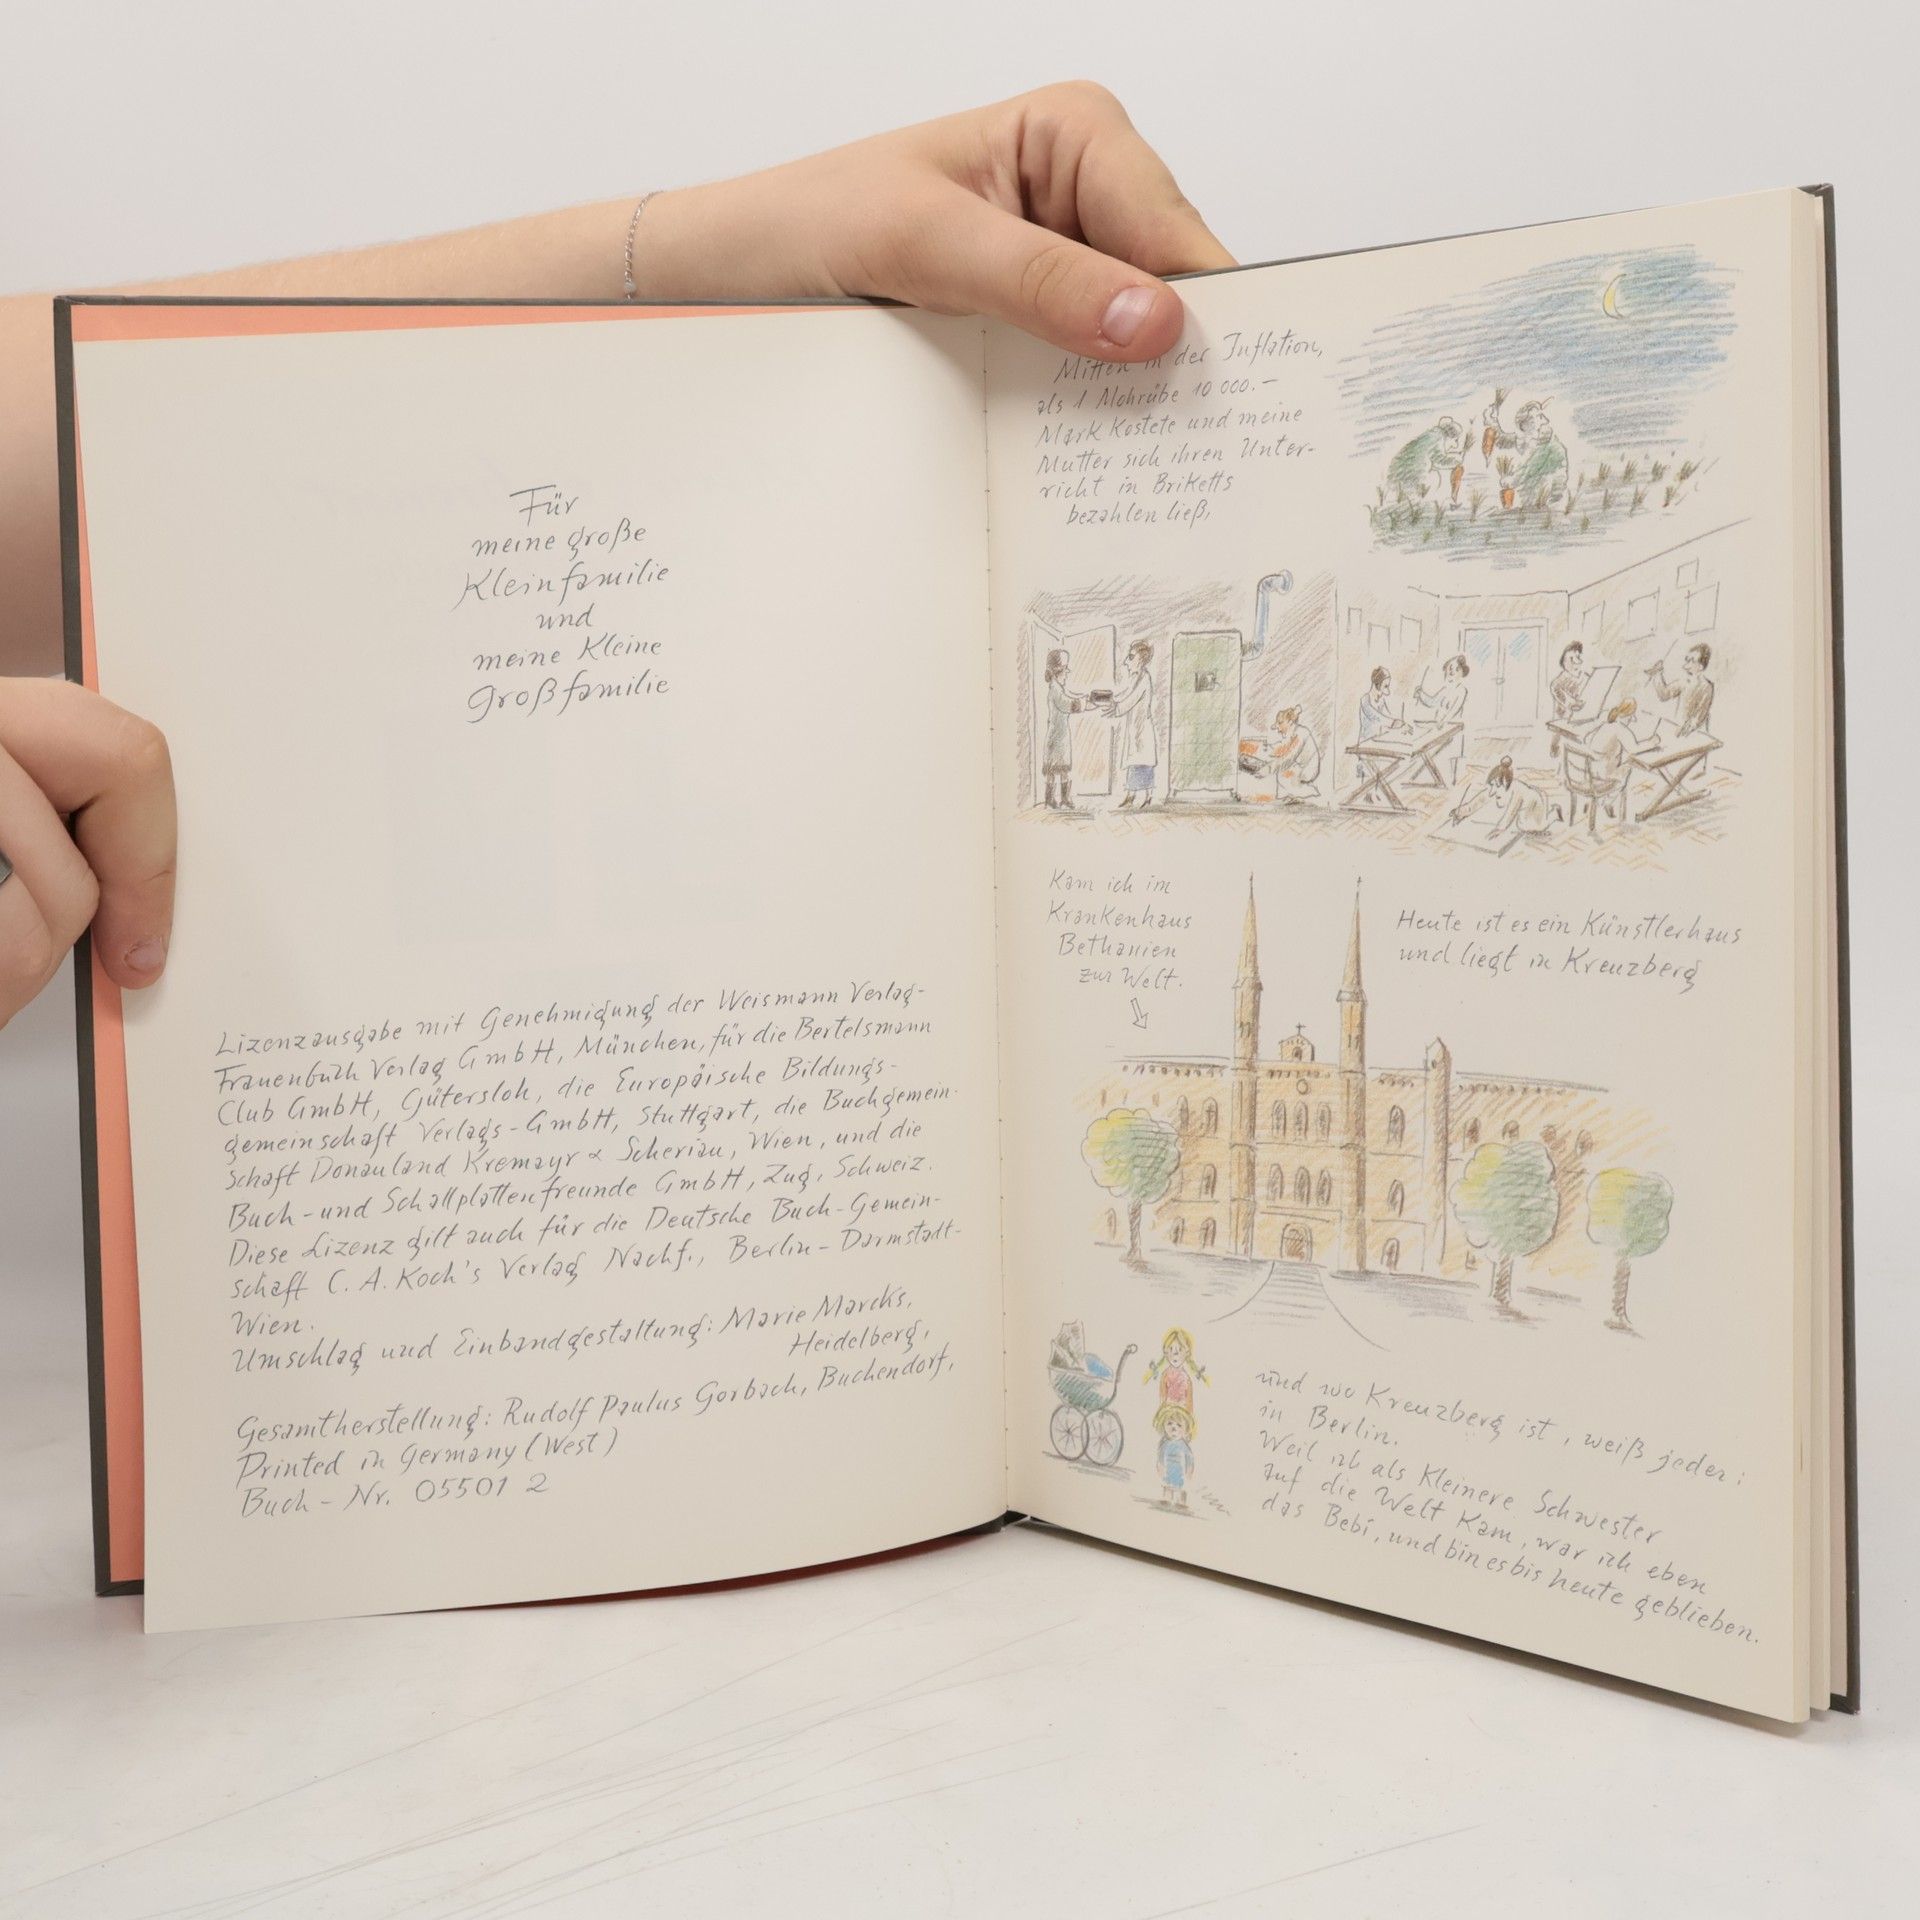 Für
meine große
Kleinfamilie
und
meine Kleine
Großfamilie
Lizenzausgabe mit Genehmigung der Weismann Verlag-
Frauenbuch Verlag GmbH, München, für die Bertelsmann
Club GmbH, Gütersloh, die Europäische Bildungs-
gemeinschaft Verlags-GmbH, Stuttgart, die Buchgemein-
schaft Donauland Kremayr & Scheriau, Wien, und die
Buch- und Schallplattenfreunde GmbH, Zug, Schweiz.
Diese Lizenz gilt auch für die Deutsche Buch-Gemein-
schaft C. A. Koch's Verlag Nachf., Berlin-Darmstadt-
Wien.
Umschlag und Einbandgestaltung: Marie Marcks,
Heidelberg,
Gesamtherstellung: Rudolf Paulus Gorbach, Buchendorf,
Printed in Germany (West)
Buch-Nr. 05501 2
Mitten in der Inflation,
als 1 Mohrübe 10 000.—
Mark Kostete und meine
Mutter sich ihren Unter-
richt in Briketts
bezahlen ließ,
Kam ich im
Krankenhaus
Bethanien
zur Welt.
Heute ist es ein Künstlerhaus
und liegt in Kreuzberg
und wo Kreuzberg ist, weiß jeder:
in Berlin.
Weil ich als Kleinere Schwester
auf die Welt Kam, war ich eben
das Bebi, und bin es bis heute geblieben.